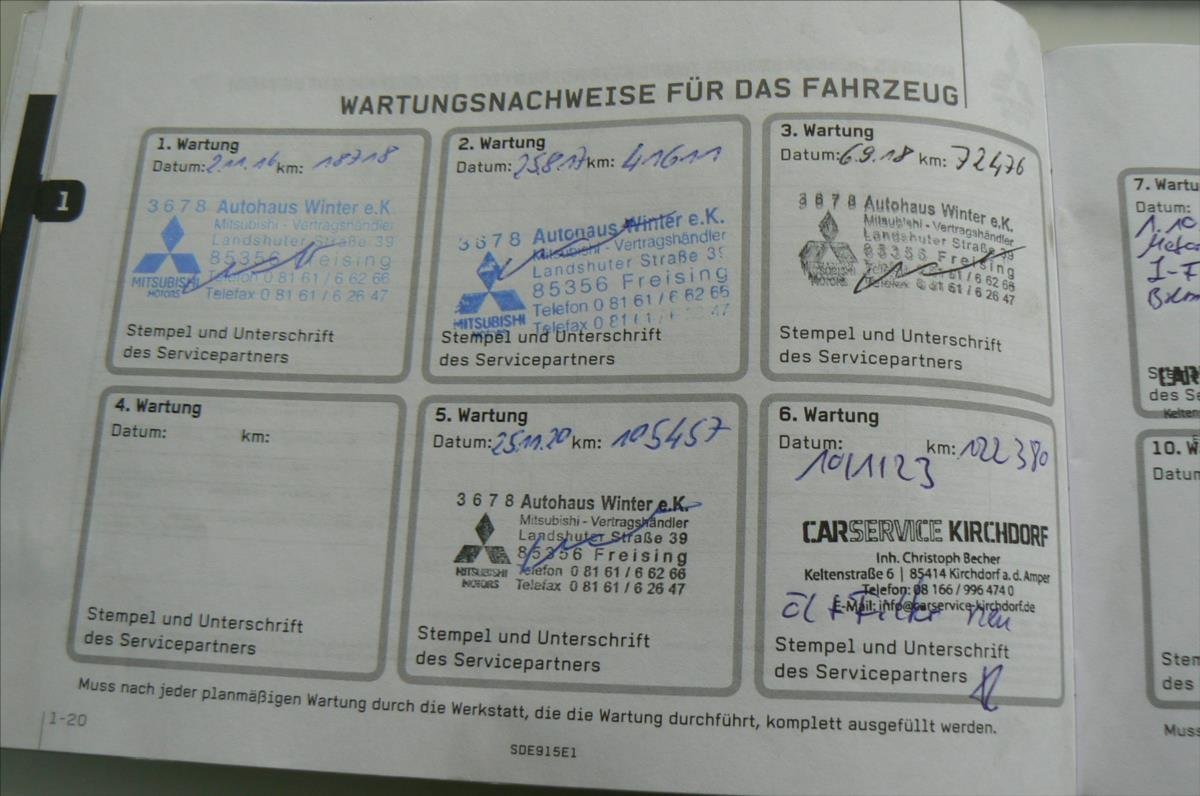 WARTUNGSNACHWEISE FÜR DAS FAHRZEUG
1
1. Wartung
Datum: 2.11.16 km: 18718
3678 Autohaus Winter e.K.
Mitsubishi - Vertragshändler
Landshuter Straße 39
85356 Freising
Telefon 0 81 61 / 6 62 66
Telefax 0 81 61 / 6 26 47
MITSUBISHI
MOTORS
Stempel und Unterschrift
des Servicepartners
2. Wartung
Datum: 25.8.17 km: 41611
3678 Autohaus Winter e.K.
Mitsubishi - Vertragshändler
Landshuter Straße 39
85356 Freising
Telefon 0 81 61 / 6 62 66
Telefax 0 81 61 / 6 26 47
MITSUBISHI
MOTORS
Stempel und Unterschrift
des Servicepartners
3. Wartung
Datum: 6.9.18 km: 72476
3678 Autohaus Winter e.K.
Mitsubishi - Vertragshändler
Landshuter Straße 39
85356 Freising
Telefon 0 81 61 / 6 62 66
Telefax 0 81 61 / 6 26 47
MITSUBISHI
MOTORS
Stempel und Unterschrift
des Servicepartners
4. Wartung
Datum: km:
Stempel und Unterschrift
des Servicepartners
5. Wartung
Datum: 25.11.20 km: 105457
3678 Autohaus Winter e.K.
Mitsubishi - Vertragshändler
Landshuter Straße 39
85356 Freising
Telefon 0 81 61 / 6 62 66
Telefax 0 81 61 / 6 26 47
MITSUBISHI
MOTORS
Stempel und Unterschrift
des Servicepartners
6. Wartung
Datum: km: 122380
10/1/23
CARSERVICE KIRCHDORF
Inh. Christoph Becher
Keltenstraße 6 | 85414 Kirchdorf a. d. Amper
Telefon: 08 166 / 996 474 0
E-Mail: info@carservice-kirchdorf.de
Öl + Filter neu
Stempel und Unterschrift
des Servicepartners
Muss nach jeder planmäßigen Wartung durch die Werkstatt, die die Wartung durchführt, komplett ausgefüllt werden.
1-20
SDE915E1
7. Wartu
Datum:
1.10
CAR
des Se
Kelten
10. W
Datum
Sten
des
Muss